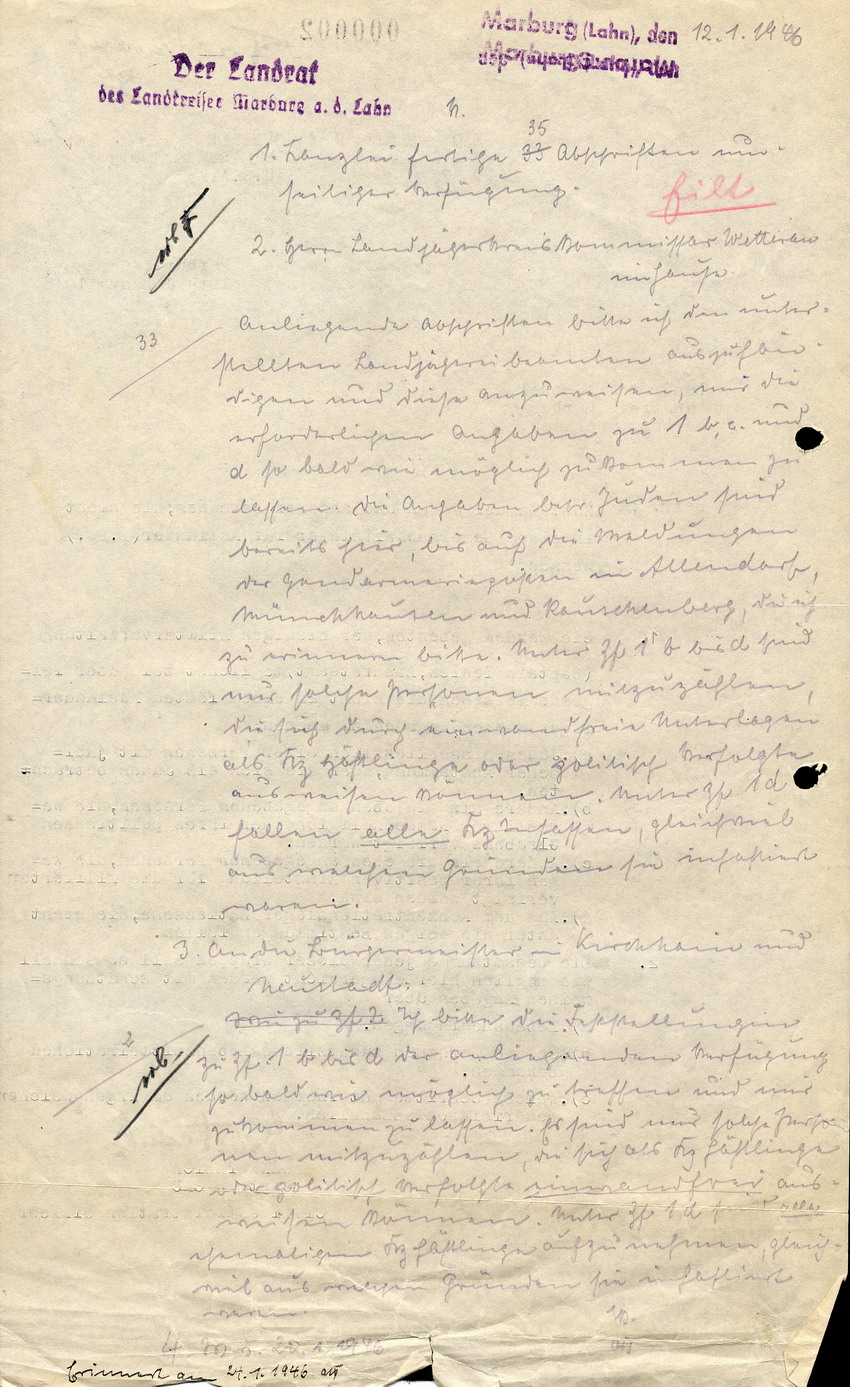 000002
Marburg (Lahn), den 12.1.1946
Der Landrat
des Landkreises Marburg a. d. Lahn
35
1. Kanzlei fertige 33 Abschriften um-
seitiger Verfügung.
Eilt
2. Herrn Landjägerkreiskommissar Wetterau
im Hause
33
Anliegende Abschriften bitte ich den unter-
stellten Landjägereibeamten auszuhän-
digen und diese anzuweisen, mir die
erforderlichen Angaben zu 1 b, c. und
d so bald wie möglich zukommen zu
lassen. Die Angaben betr. Juden sind
bereits hier, bis auf die Meldungen
der Gendarmerieposten in Allendorf,
Münchhausen und Rauschenberg, die ich
zu erinnern bitte. Unter Zf 1 b bis d sind
nur solche Personen mitzuzählen,
die sich durch einwandfreie Unterlagen
als Kz Häftlinge oder politisch Verfolgte
ausweisen können. Unter Zf 1d
fallen alle Kz Insassen, gleichviel
aus welchen Gründen sie inhaftiert
waren.
3. An die Bürgermeister in Kirchhain und
Neustadt.
Wie zu Zf 2 Ich bitte die Feststellungen
2
zu Zf. 1 b bis d der anliegenden Verfügung
so bald wie möglich zu treffen und mir
zukommen zu lassen. Es sind nur solche Perso
nen mitzuzählen, die sich als Kz Häftlinge
oder politisch Verfolgte einwandfrei aus-
weisen können. Unter Zf 1d sind alle
ehemaligen Kz Häftlinge aufzunehmen, gleich-
viel aus welchen Gründen sie inhaftiert
waren.
4. 20.1.1946
Erinnert am 24.1.1946